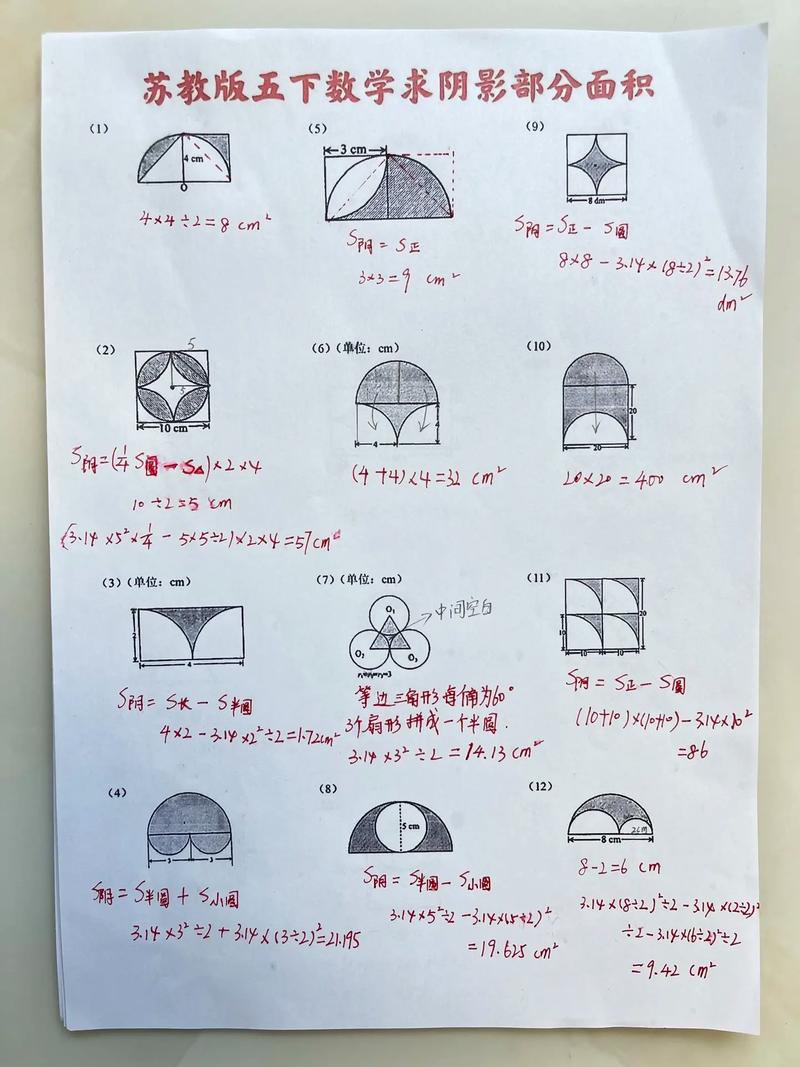 苏教版五下数学求阴影部分面积
(1)
4 cm
O
4×4÷2=8 cm²
(2)
5
10 cm
S阴=(¼S圆-S△)×2×4
10÷2=5 cm
(3.14×5²×¼-5×5÷2)×2×4=57cm²
(3)(单位：cm)
2
4
S阴=S长-S半圆
4×2-3.14×2²÷2=1.72cm²
(4)
3
3
S阴=S半圆+S小圆
3.14×3²÷2+3.14×(3÷2)²=21.195
(5)
3 cm
S阴=S正
3×3=9 cm²
(6)(单位：cm)
4
4
(4+4)×4=32 cm²
(7)(单位：cm)
O₁
中间空白
O₂
O₃
r₁=r₂=r₃=3
等边三角形每个角为60°
3个扇形拼成一个半圆.
3.14×3²÷2=14.13 cm²
(8)
5 cm
S阴=S半圆-S小圆
3.14×5²÷2-3.14×(5÷2)²
=19.625 cm²
(9)
8 dm
S阴=S正-S圆
8×8-3.14×(8÷2)²=13.76
dm²
(10)
20
20
20×20=400 cm²
(11)
20
10
10
10
S阴=S正-S圆
(10+10)×(10+10)-3.14×10²
=86
(12)
2cm
8 cm
8-2=6 cm
3.14×(8÷2)²÷2-3.14×(2÷2)²
÷2-3.14×(6÷2)²÷2
=9.42 cm²